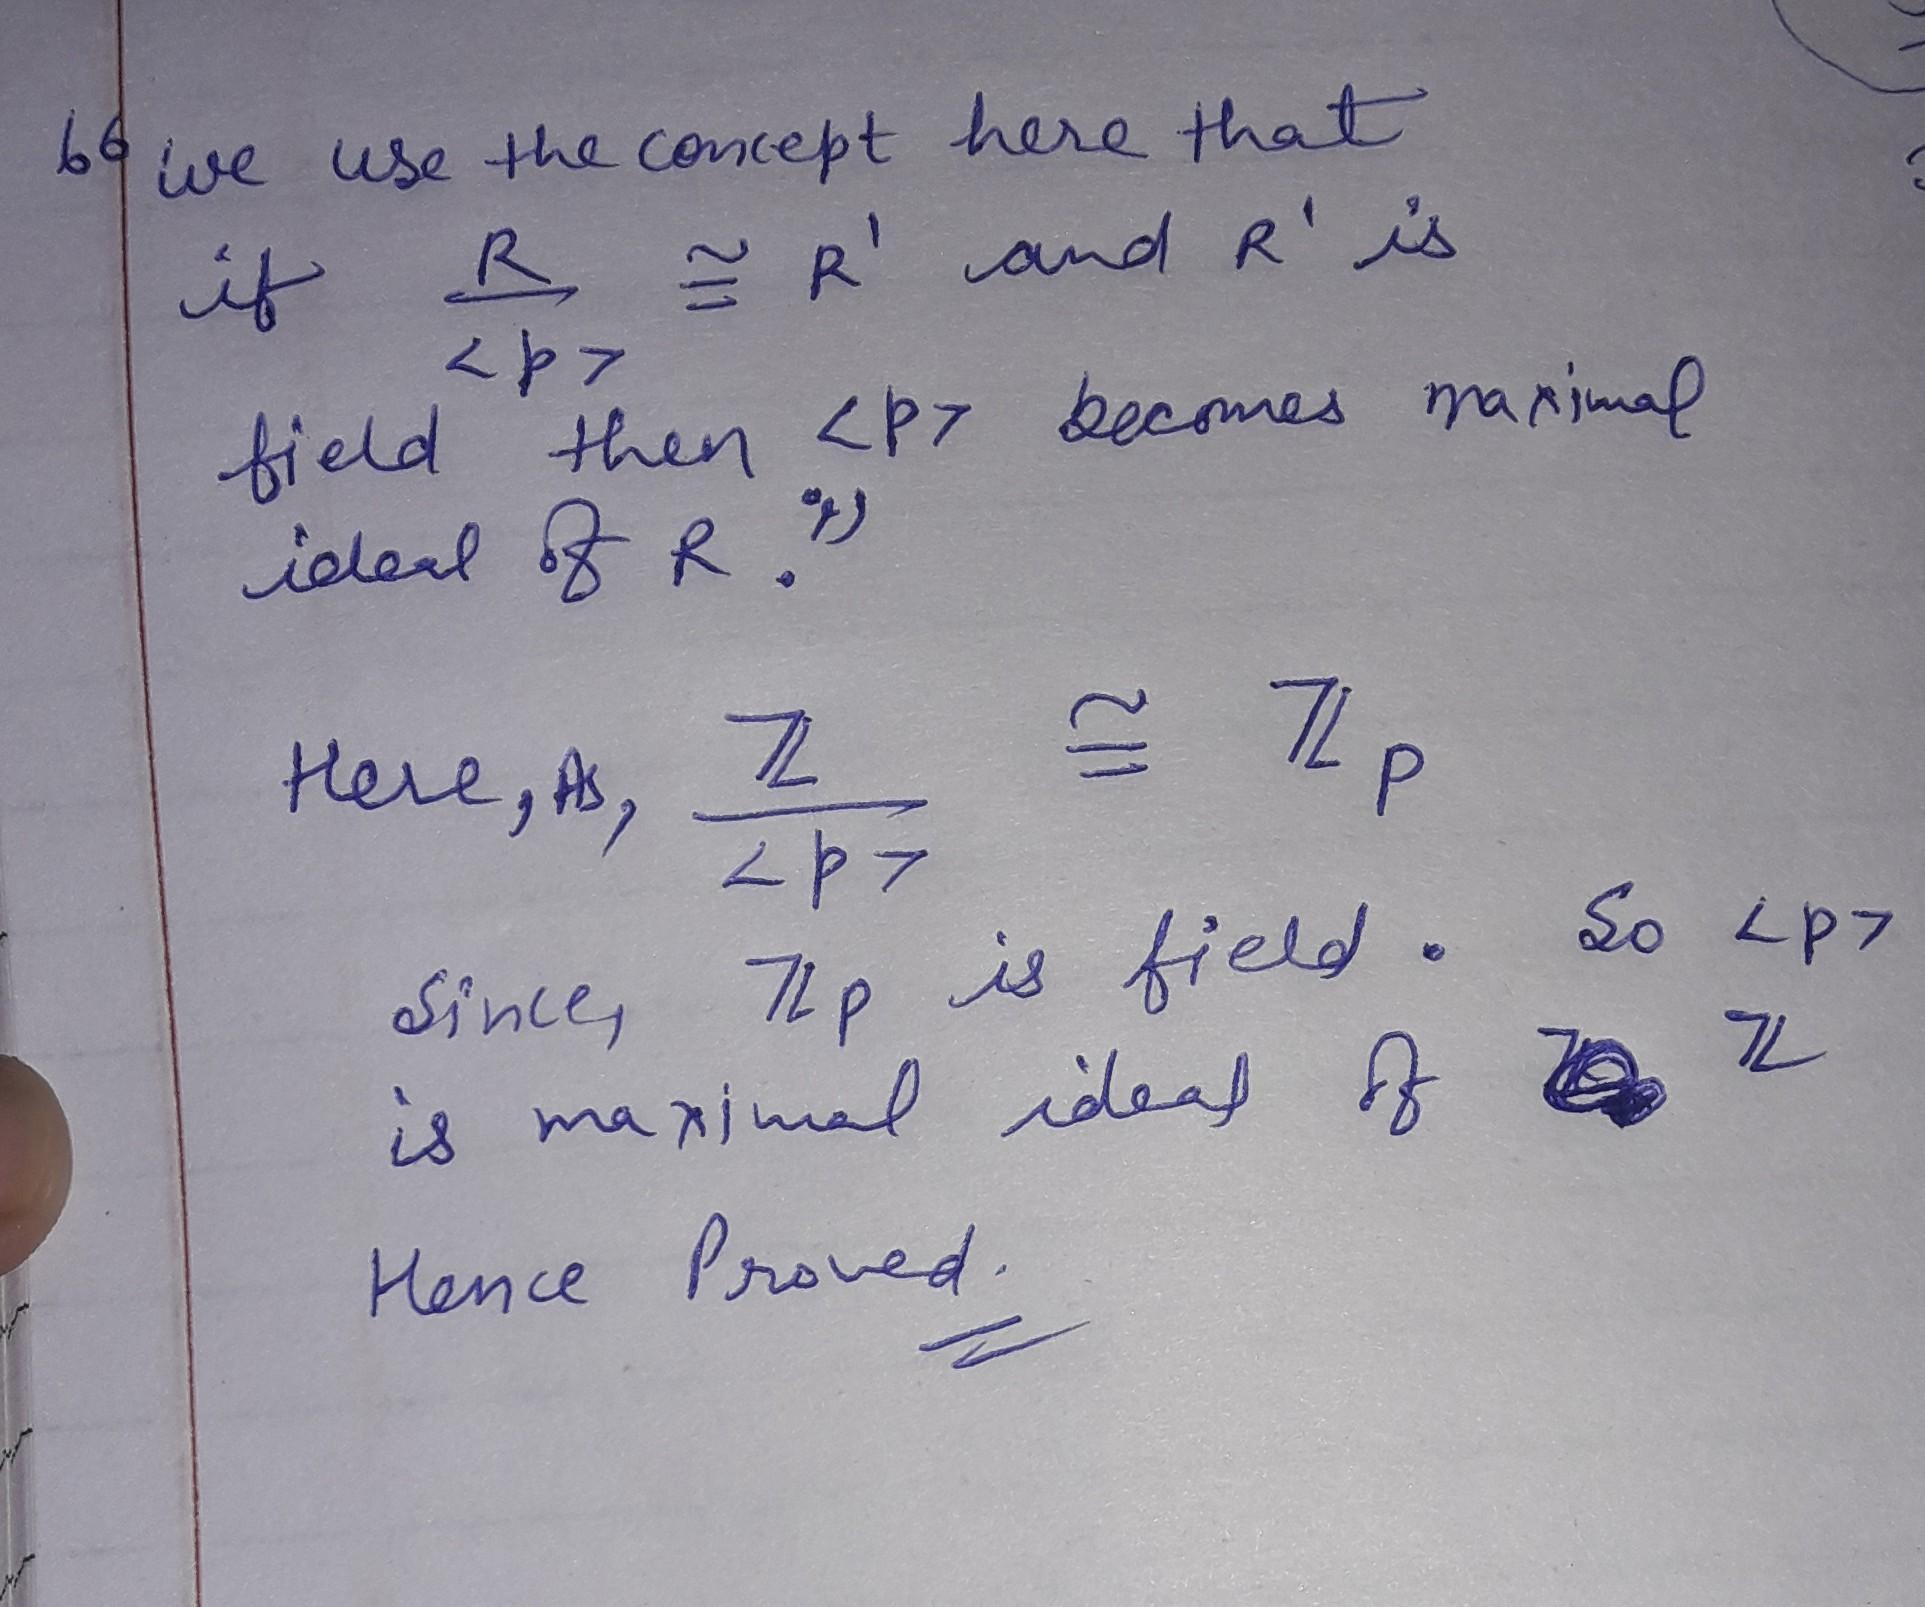 66 we use the concept here that
if R/<p> ≅ R' and R' is
field then <p> becomes maximal
ideal of R."
Here, As, ℤ/<p> ≅ ℤp
Since, ℤp is field. So <p>
is maximal ideal of ℤ
Hence Proved.